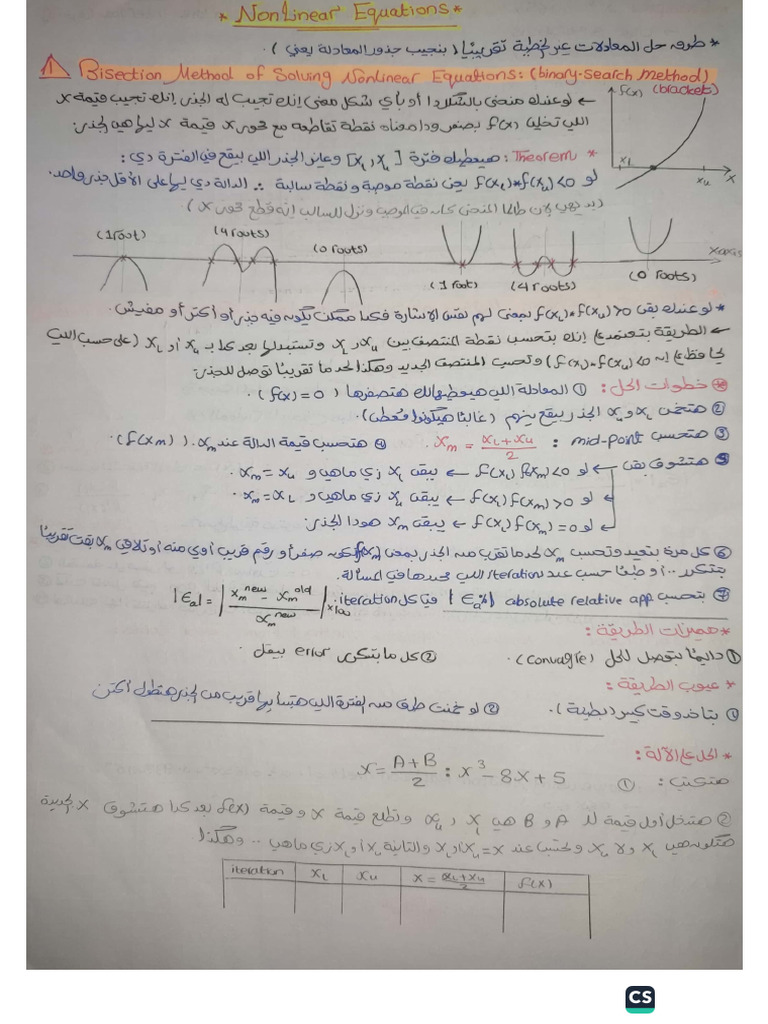 * NonLinear Equations *
* طرق حل المعادلات غير الخطية تقريبيًا (بنجيب جذور المعادلة يعني).
1 Bisection Method of Solving Nonlinear Equations: (binary-search method)
(brackets)
← لو عندك منحنى بالشكل دا أو بأي شكل معنى إنك تجيب له الجذر إنك تجيب قيمة x
اللي تخلي f(x) بصفر ودا معناه نقطة تقاطعه مع محور x قيمة x ليها هي الجذر.
f(x)
x
xL
xu
* Theorem: هيعطيك فترة [xL, xu] وعايز الجذر اللي بيقع في الفترة دي:
لو f(xL)*f(xu)<0 يعني نقطة موجبة ونقطة سالبة ∴ الدالة دي ليها على الأقل جذر واحد.
(بديهي لأن طالما المنحنى كان في الموجب ونزل للسالب إنه قطع محور x)
(1 root)
(4 roots)
(0 roots)
(1 root)
(4 roots)
(0 roots)
x-axis
* لو عندك بقى f(xL)*f(xu)>0 يعني لهم نفس الإشارة فكدا ممكن يكون فيه جذر أو أكتر أو مفيش.
← الطريقة بتعتمد على إنك بتحسب نقطة المنتصف بين xL و xu وتستبدلها بعد كدا بـ xu أو xL (على حسب اللي
يحافظ على إن f(xL)*f(xu)<0) وتحسب المنتصف الجديد وهكذا لحد ما تقريبًا توصل للجذر.
* خطوات الحل: ① المعادلة اللي هيعطيهالك هتصفرها (f(x)=0).
② هتخمن xL و xu الجذر بيقع بينهم (غالبًا هيكونوا مُعطى).
③ هتحسب mid-point: xm = (xL+xu)/2 ④ هتحسب قيمة الدالة عند xm. (f(xm)).
⑤ هتشوف بقى ← لو f(xL) f(xm)<0 ← يبقى xL زي ماهي و xm = xu.
← لو f(xL) f(xm)>0 ← يبقى xu زي ماهي و xm = xL.
← لو f(xL) f(xm)=0 ← يبقى xm هو دا الجذر.
⑥ كل مرة بتعيد وتحسب xm لحد ما تقرب من الجذر بمعنى f(xm) تكون صفر أو رقم قريب أوي منه أو تلاقي xm بقت تقريبًا
بتتكرر .. أو طبعًا حسب عدد iteration اللي محددها في المسألة.
⑦ بتحسب absolute relative app |εa%| في كل iteration: |εa| = |(xm^new - xm^old)/xm^new| x100
* مميزات الطريقة:
① دايمًا بتوصل للحل (convagle). ② كل ما بتكرر error بيقل.
* عيوب الطريقة:
① بتاخد وقت كبير (بطيئة). ② لو خمنت طرف من الفترة اللي هتبدأ بيها قريب من الجذر هتطول أكتر.
* الحل على الآلة:
هتكتب: ① x = (A+B)/2 : x³ - 8x + 5
② هتدخل أول قيمة لـ A و B هي xL و xu وتطلع قيمة x وقيمة f(x) بعد كدا هتشوف x الجديدة
هتكون هي xL ولا xu وتحسبها عند x = xL أو xu والتانية xu أو xL زي ماهي .. وهكذا
iteration | xL | xu | x = (xL+xu)/2 | f(x)
CS